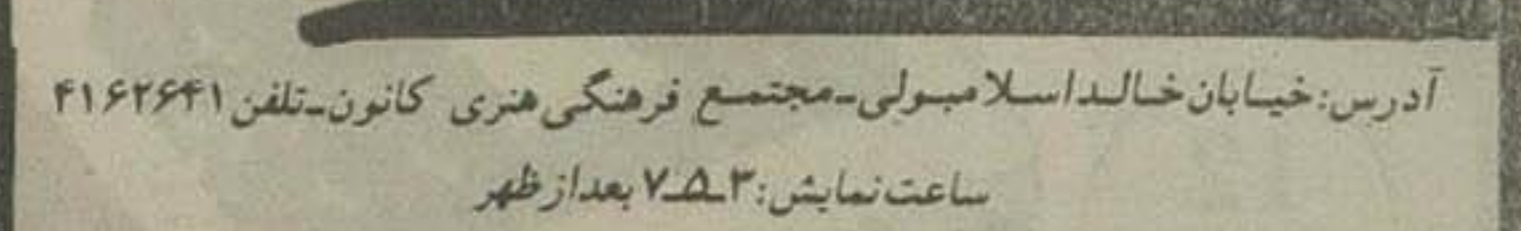 آدرس:خیابان خالد اسلامبولی-مجتمع فرهنگی هنری کانون-تلفن ۴۱۶۲۶۴۱
ساعت نمایش:۳-۵-۷ بعد از ظهر